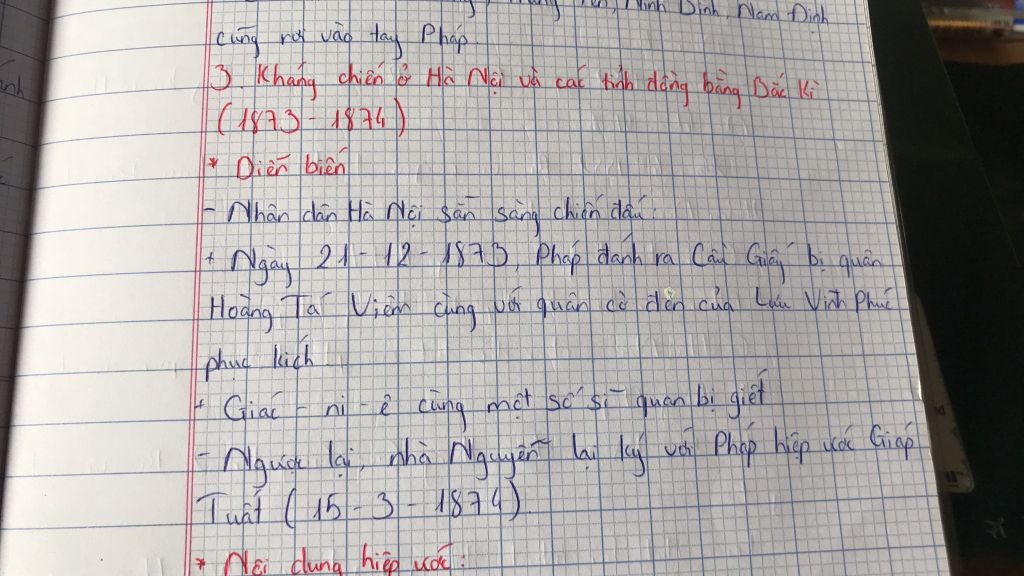 Ninh Bình, Nam Định
cũng rơi vào tay Pháp.
3. Kháng chiến ở Hà Nội và các tỉnh đồng bằng Bắc Kì
(1873 - 1874)
* Diễn biến
- Nhân dân Hà Nội sẵn sàng chiến đấu:
+ Ngày 21 - 12 - 1873, Pháp đánh ra Cầu Giấy bị quân
Hoàng Tá Viêm cùng với quân cờ đen của Lưu Vĩnh Phúc
phục kích
+ Giác - ni - ê cùng một số sĩ quan bị giết
- Ngược lại, nhà Nguyễn lại ký với Pháp hiệp ước Giáp
Tuất (15 - 3 - 1874).
* Nội dung hiệp ước: